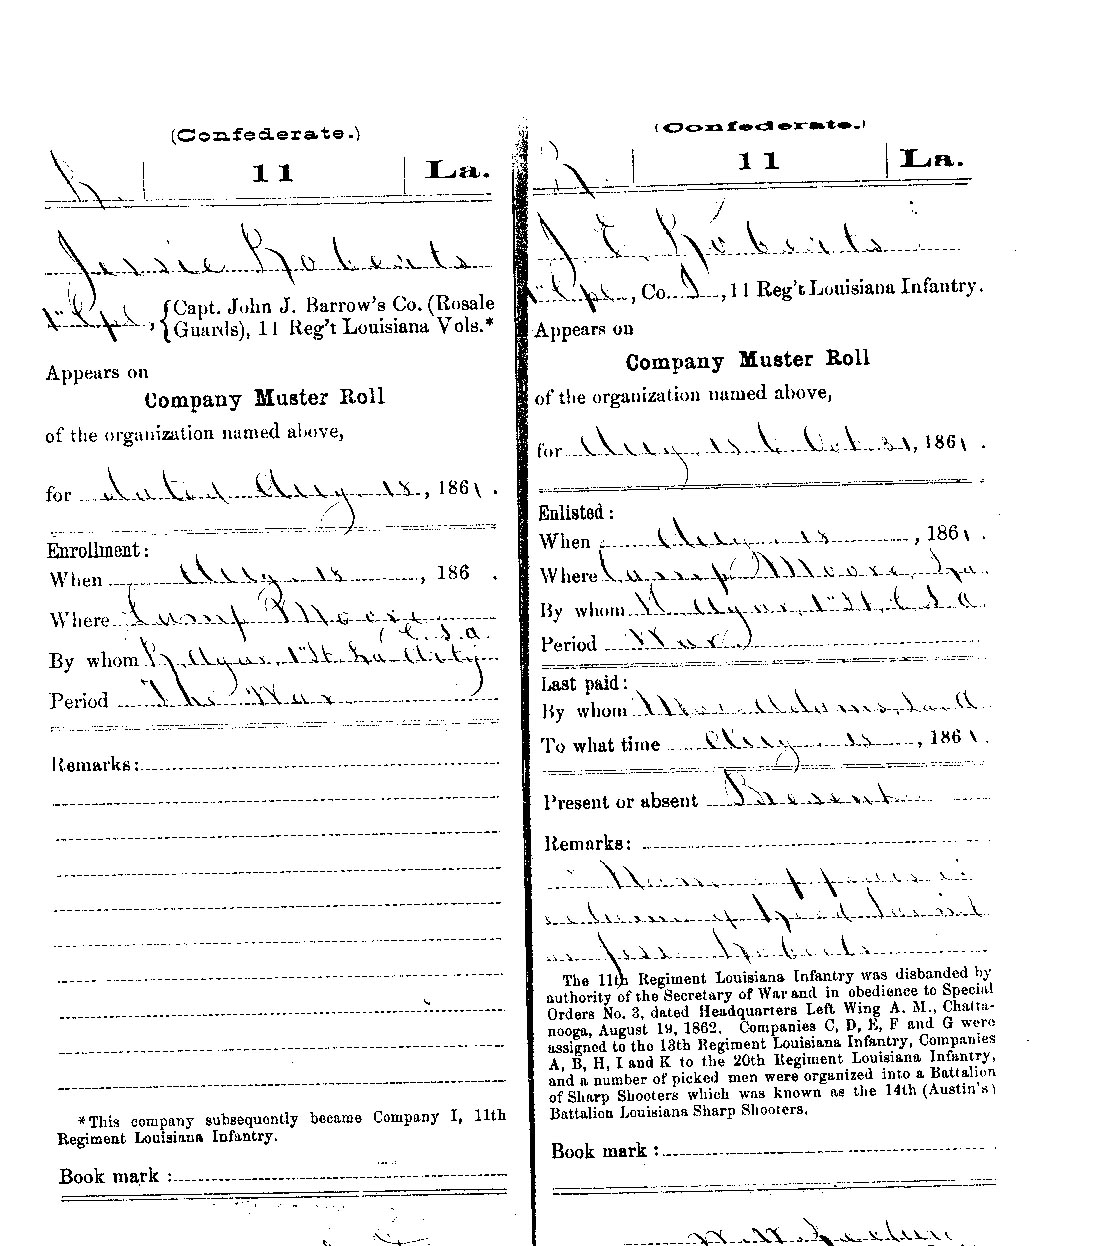 (Confederate.)
R. | 11 | La.
Jessie Roberts
1" Cpl, {Capt. John J. Barrow's Co. (Rosale
Guards), 11 Reg't Louisiana Vols.*
Appears on
Company Muster Roll
of the organization named above,
for dated Aug 18, 1861.
Enrollment:
When Aug. 18, 186 .
Where Camp Moore
C.S.A.
By whom R. Agar, 1" Lt. La Arty
Period The War
Remarks:
*This company subsequently became Company I, 11th
Regiment Louisiana Infantry.
Book mark :
(Confederate.)
R. | 11 | La.
J. E. Roberts
1" Cpl., Co. I, 11 Reg't Louisiana Infantry.
Appears on
Company Muster Roll
of the organization named above,
for Aug 18 to Oct 31, 1861.
Enlisted:
When Aug. 18, 1861.
Where Camp Moore, La.
By whom R. Agar, 1" Lt. C S A
Period War
Last paid:
By whom Maj. Adams,
To what time Aug. 18, 1861.
Present or absent Present
Remarks:
Name appears in
column of
as Jesse Roberts
The 11th Regiment Louisiana Infantry was disbanded by
authority of the Secretary of War and in obedience to Special
Orders No. 3, dated Headquarters Left Wing A. M., Chatta-
nooga, August 19, 1862. Companies C, D, E, F and G were
assigned to the 13th Regiment Louisiana Infantry, Companies
A, B, H, I and K to the 20th Regiment Louisiana Infantry,
and a number of picked men were organized into a Battalion
of Sharp Shooters which was known as the 14th (Austin's)
Battalion Louisiana Sharp Shooters.
Book mark :